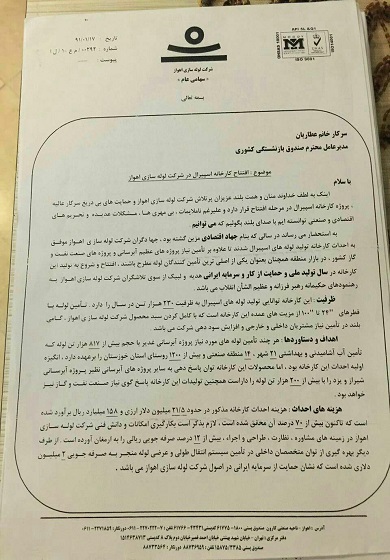 تاریخ ۹۱/۰۱/۱۷
شماره
پیوست
شرکت لوله سازی اهواز
سهامی عام
بسمه تعالی
ISO 9001
سرکار خانم عطاریان
مدیرعامل محترم صندوق بازنشستگی کشوری
موضوع : افتتاح کارخانه اسپیرال در شرکت لوله سازی اهواز
با سلام
اینک به لطف خداوند منان و همت بلند عزیزان پرتلاش شرکت لوله سازی اهواز و حمایت های بی دریغ سرکار عالیه
، پروژه کارخانه اسپیرال در مرحله افتتاح قرار دارد و علیرغم ناملایمات ، بی مهری ها ، مشکلات عدیده و تحریم های
اقتصادی و صنعتی توانسته ایم با صدای بلند بگوئیم که می توانیم
به استحضار می رساند در سالی که بنام جهاد اقتصادی مزین گشته بود ، جهادگران شرکت لوله سازی اهواز موفق
به احداث کارخانه تولید لوله های اسپیرال شدند تا علاوه بر تأمین نیاز پروژه های عظیم آبرسانی و پروژه های صنعت نفت و
گاز کشور ، در بازار منطقه همچنان بعنوان یکی از اصلی ترین تأمین کنندگان لوله مطرح باشند ، افتتاح و شروع به تولید این
کارخانه در سال تولید ملی و حمایت از کار و سرمایه ایرانی هدیه و لبیک از سوی تلاشگران شرکت لوله سازی اهواز به
رهنمودهای حکیمانه رهبر فرزانه و عظیم الشأن انقلاب می باشد
ظرفیت : این کارخانه توانایی تولید لوله های اسپیرال به ظرفیت ۲۳۰ هزار تن در سال را دارد . تأمین لوله با
قطرهای "۲۴ تا "۱۰۰ از مزیت های عمده این کارخانه است که با کامل کردن سبد محصول شرکت لوله سازی اهواز ، گامی
بلند در تأمین نیاز مشتریان داخلی و خارجی و افزایش سود دهی شرکت می باشد
اهداف و دستاوردها : هر چند تأمین لوله های مورد نیاز پروژه آبرسانی غدیر با حجم بیش از ۸۱۷ هزار تن لوله که
تأمین آب آشامیدنی و بهداشتی ۲۱ شهر ، ۱۴ منطقه صنعتی و بیش از ۱۲۰۰ روستای استان خوزستان را برعهده دارد ، انگیزه
اولیه احداث این کارخانه بود ، اما محصولات این کارخانه توان پاسخ دهی به سایر پروژه های آبرسانی نظیر پروژه آبرسانی
شیراز و یزد را با بیش از ۲۰۰ هزار تن لوله را داراست همچنین تولیدات این کارخانه پاسخ گوی نیاز صنعت نفت و گاز نیز
خواهد بود .
هزینه های احداث : هزینه احداث کارخانه مذکور در حدود ۲۱/۵ میلیون دلار ارزی و ۱۵۸ میلیارد ریال برآورد شده
است که تاکنون بیش از ۷۰ درصد آن محقق شده است . لازم بذکر است بکارگیری امکانات و دانش فنی شرکت لوله سازی
اهواز در زمینه های مشاوره ، نظارت ، طراحی و اجراء ، بیش از ۱۲ درصد صرفه جویی ریالی را به ارمغان آورده است . از طرف
دیگر بهره گیری از توان متخصصان داخلی در تأمین سیستم انتقال طولی و عرضی لوله منجر به صرفه جویی ۲ میلیون
دلاری شده است که نشان حمایت از سرمایه ایرانی در اصول شرکت لوله سازی اهواز می باشد .